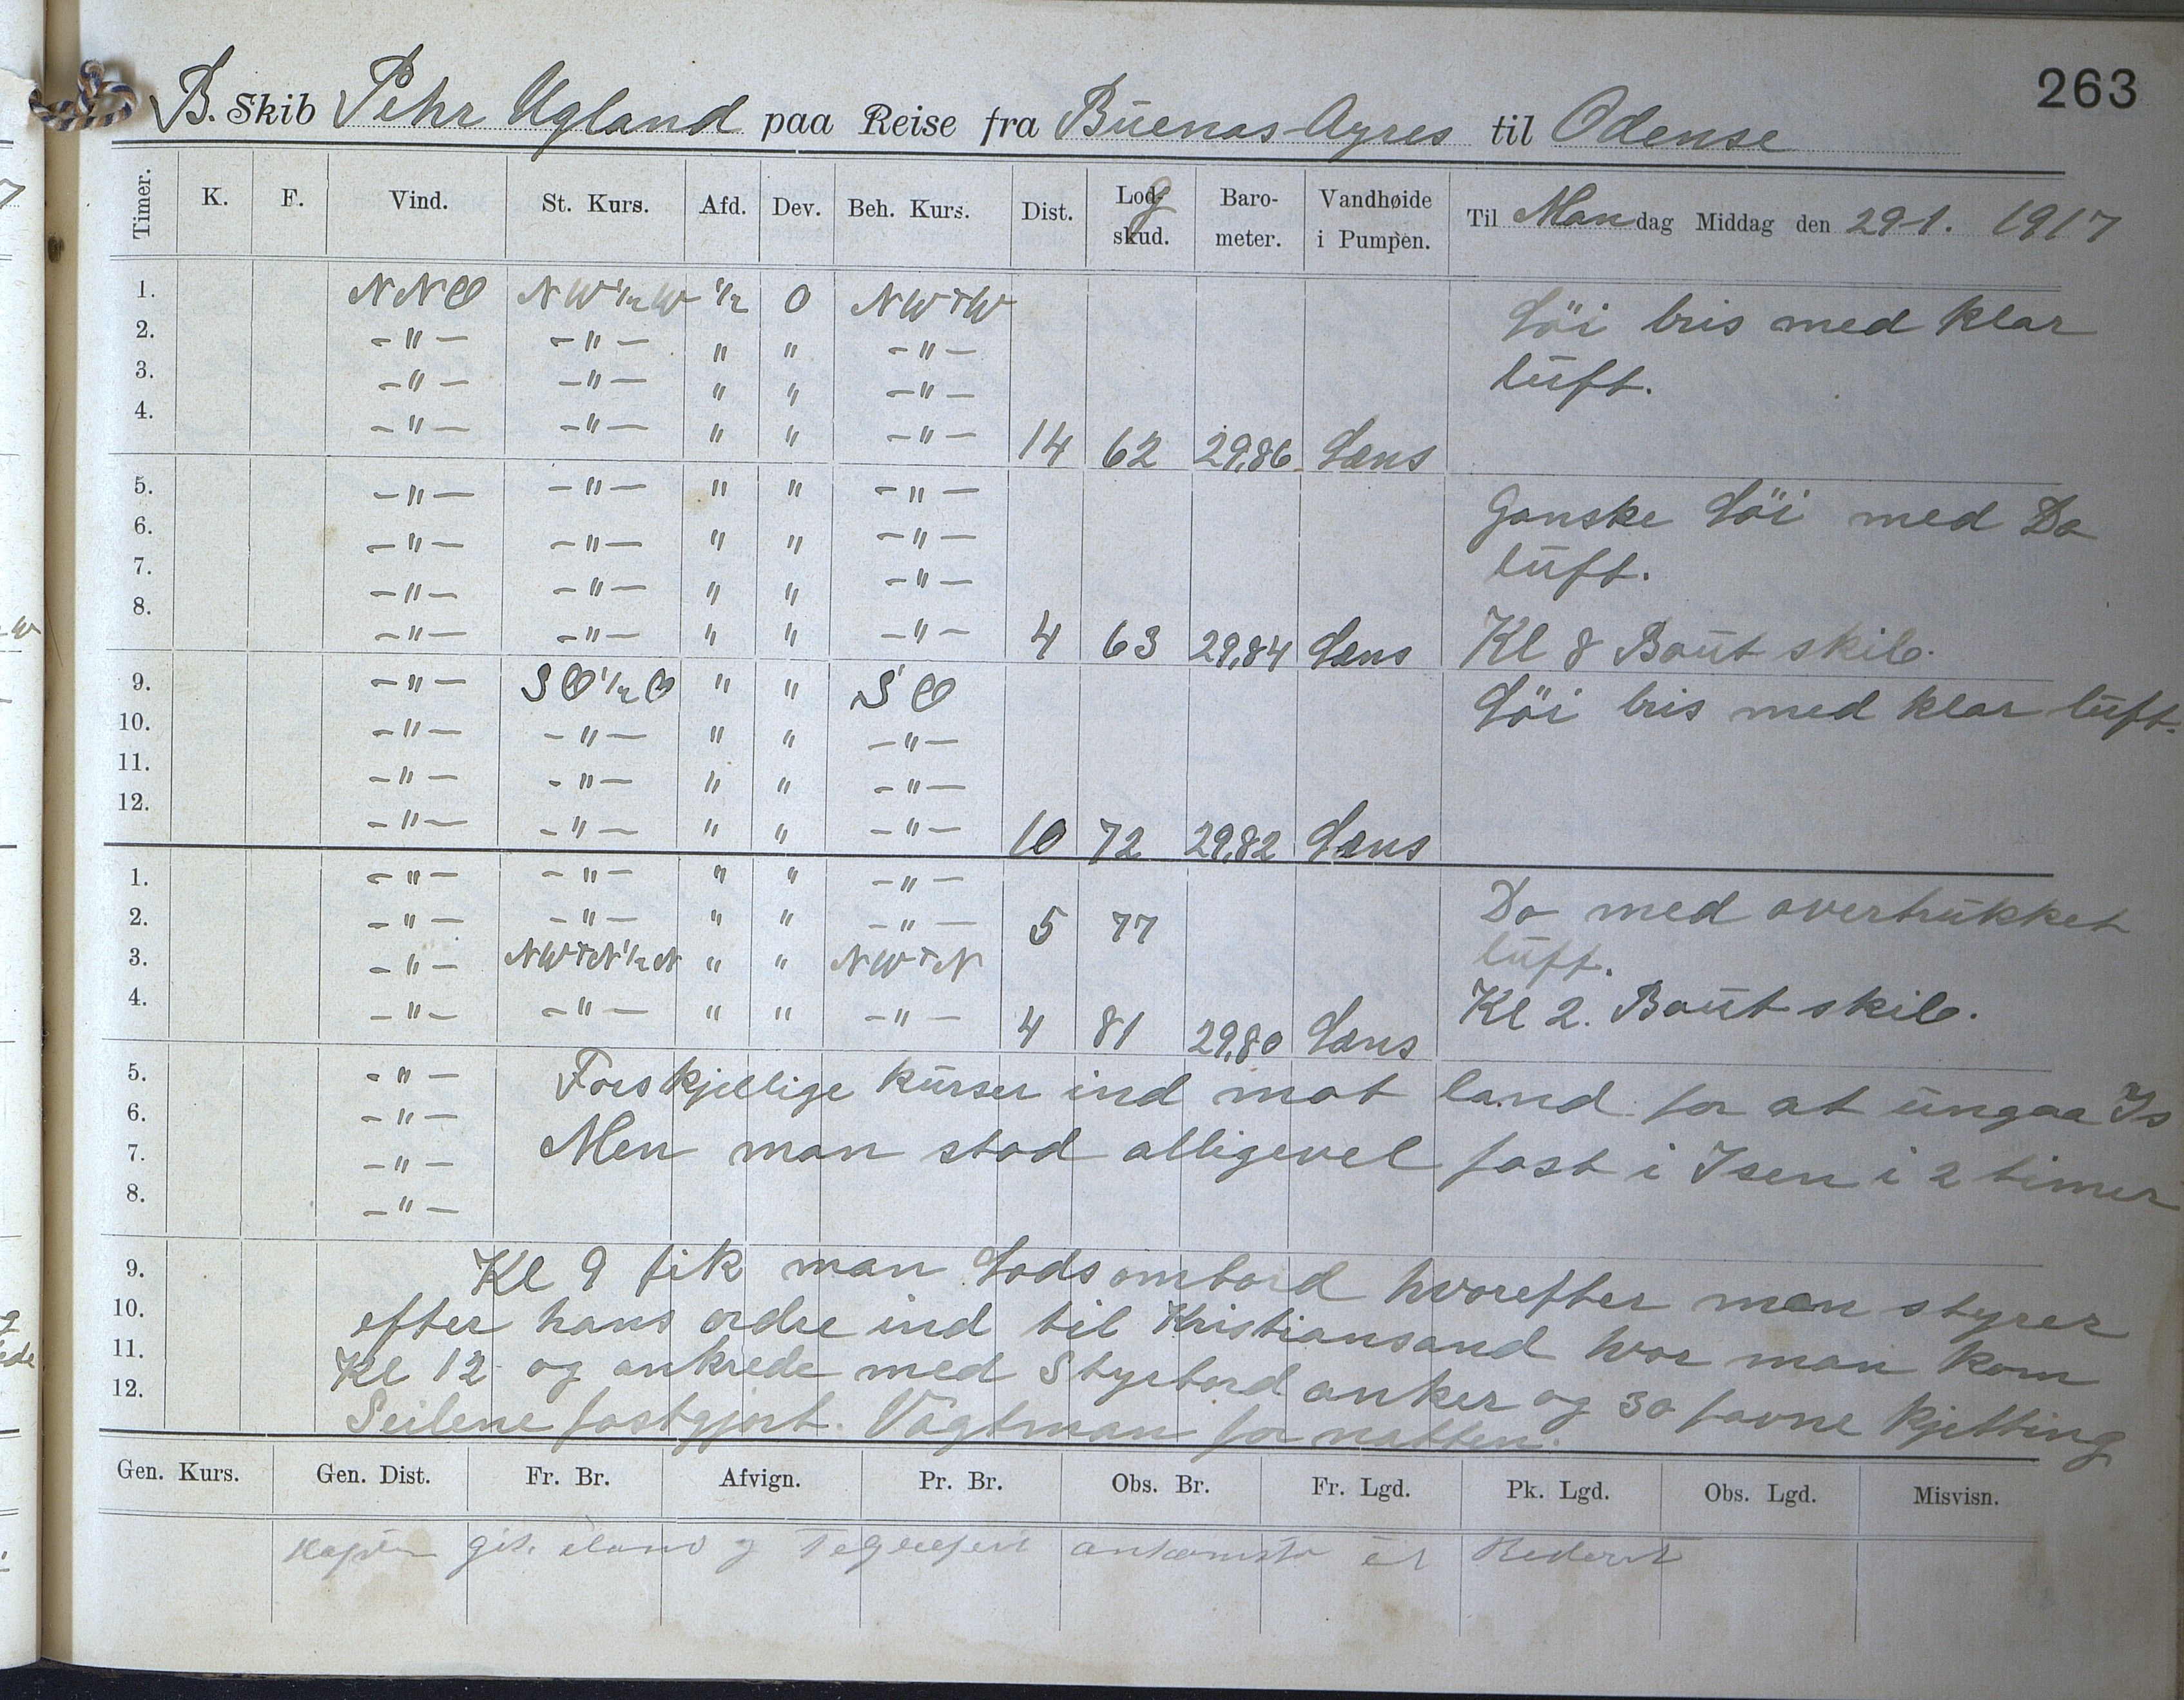 263
B. Skib Pehr Ugland paa Reise fra Buenos-Ayres til Odense
Timer. K. F. Vind. St. Kurs. Afd. Dev. Beh. Kurs. Dist. Logskud. Barometer. Vandhøide i Pumpen. Til Mandag Middag den 29-1. 1917
1. NNO NW½W ½ 0 NWtW Löi bris med klar
2. -"- -"- " " -"- luft.
3. -"- -"- " " -"-
4. -"- -"- " " -"- 14 62 29,86 Læns
5. -"- -"- " " -"- Ganske Löi med Do
6. -"- -"- " " -"- luft.
7. -"- -"- " " -"-
8. -"- -"- " " -"- 4 63 29,84 Læns Kl 8 Bout skib.
9. -"- SO½O " " SO Löi bris med klar luft.
10. -"- -"- " " -"-
11. -"- -"- " " -"-
12. -"- -"- " " -"- 10 72 29,82 Læns
1. -"- -"- " " -"- Do med overtrukket
2. -"- -"- " " -"- 5 77 luft.
3. -"- NWtN½N " " NWtN Kl 2. Bout skib.
4. -"- -"- " " -"- 4 81 29,80 Læns
5. -"- Forskjellige kurser ind mot land for at ungaa Is
6. -"- Men man stod alligevel fast i Isen i 2 timer
7. -"-
8. -"-
9. Kl 9 fik man Lods ombord hvorefter man styrer
10. efter hans ordre ind til Kristiansand hvor man kom
11. Kl 12 og ankrede med Styrbord anker og 30 favne kjetting
12. Seilene fastgjort. Vagtman for natten.
Gen. Kurs. Gen. Dist. Fr. Br. Afvign. Pr. Br. Obs. Br. Fr. Lgd. Pk. Lgd. Obs. Lgd. Misvisn.
Kaptein gik iland og ankomst til Rederiet